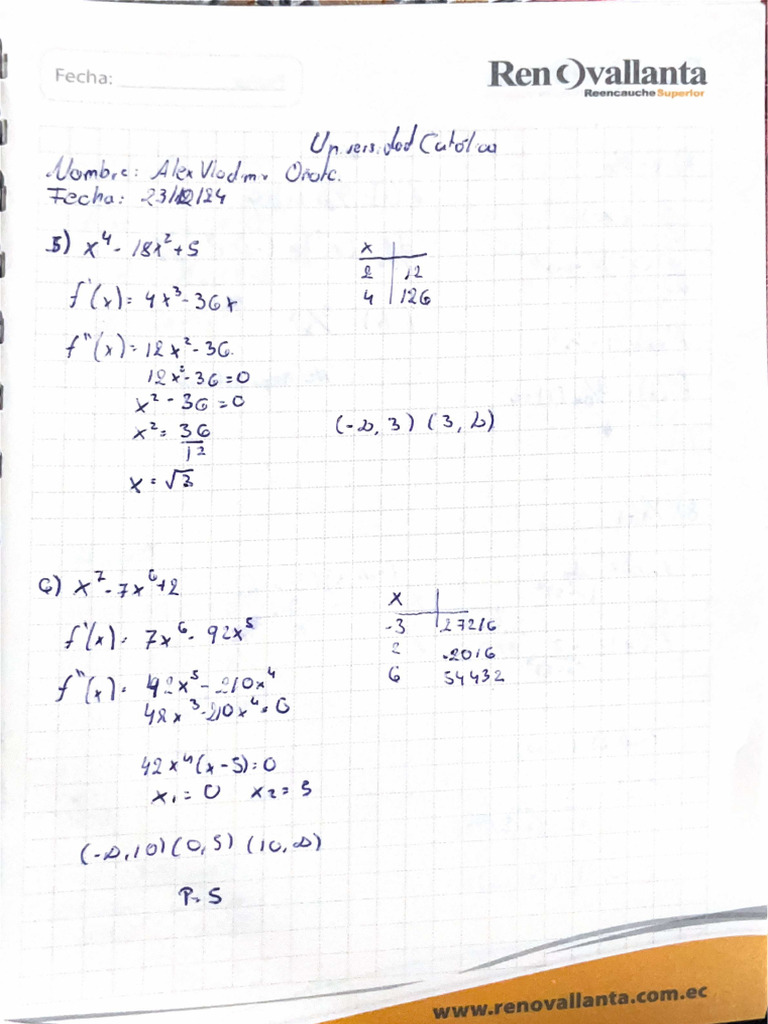 Fecha:
RenOvallanta
Reencauche Superior
Universidad Católica
Nombre: Alex Vladmir
Fecha: 23/12/24
5) x⁴ - 18x² + 5
x
2 12
4 126
f'(x) = 4x³ - 36x
f''(x) = 12x² - 36.
12x² - 36 = 0
x² - 36 = 0
x² = 36/12
(-∞, 3) (3, ∞)
x = √3
6) x⁷ - 7x⁶ + 2
x
-3 27216
2 -2016
6 54432
f'(x) = 7x⁶ - 92x⁵
f''(x) = 42x⁵ - 210x⁴
48x³ - 210x⁴ = 0
42x⁴(x - 5) = 0
x₁ = 0 x₂ = 5
(-∞, 10) (0, 5) (10, ∞)
P. 5
www.renovallanta.com.ec